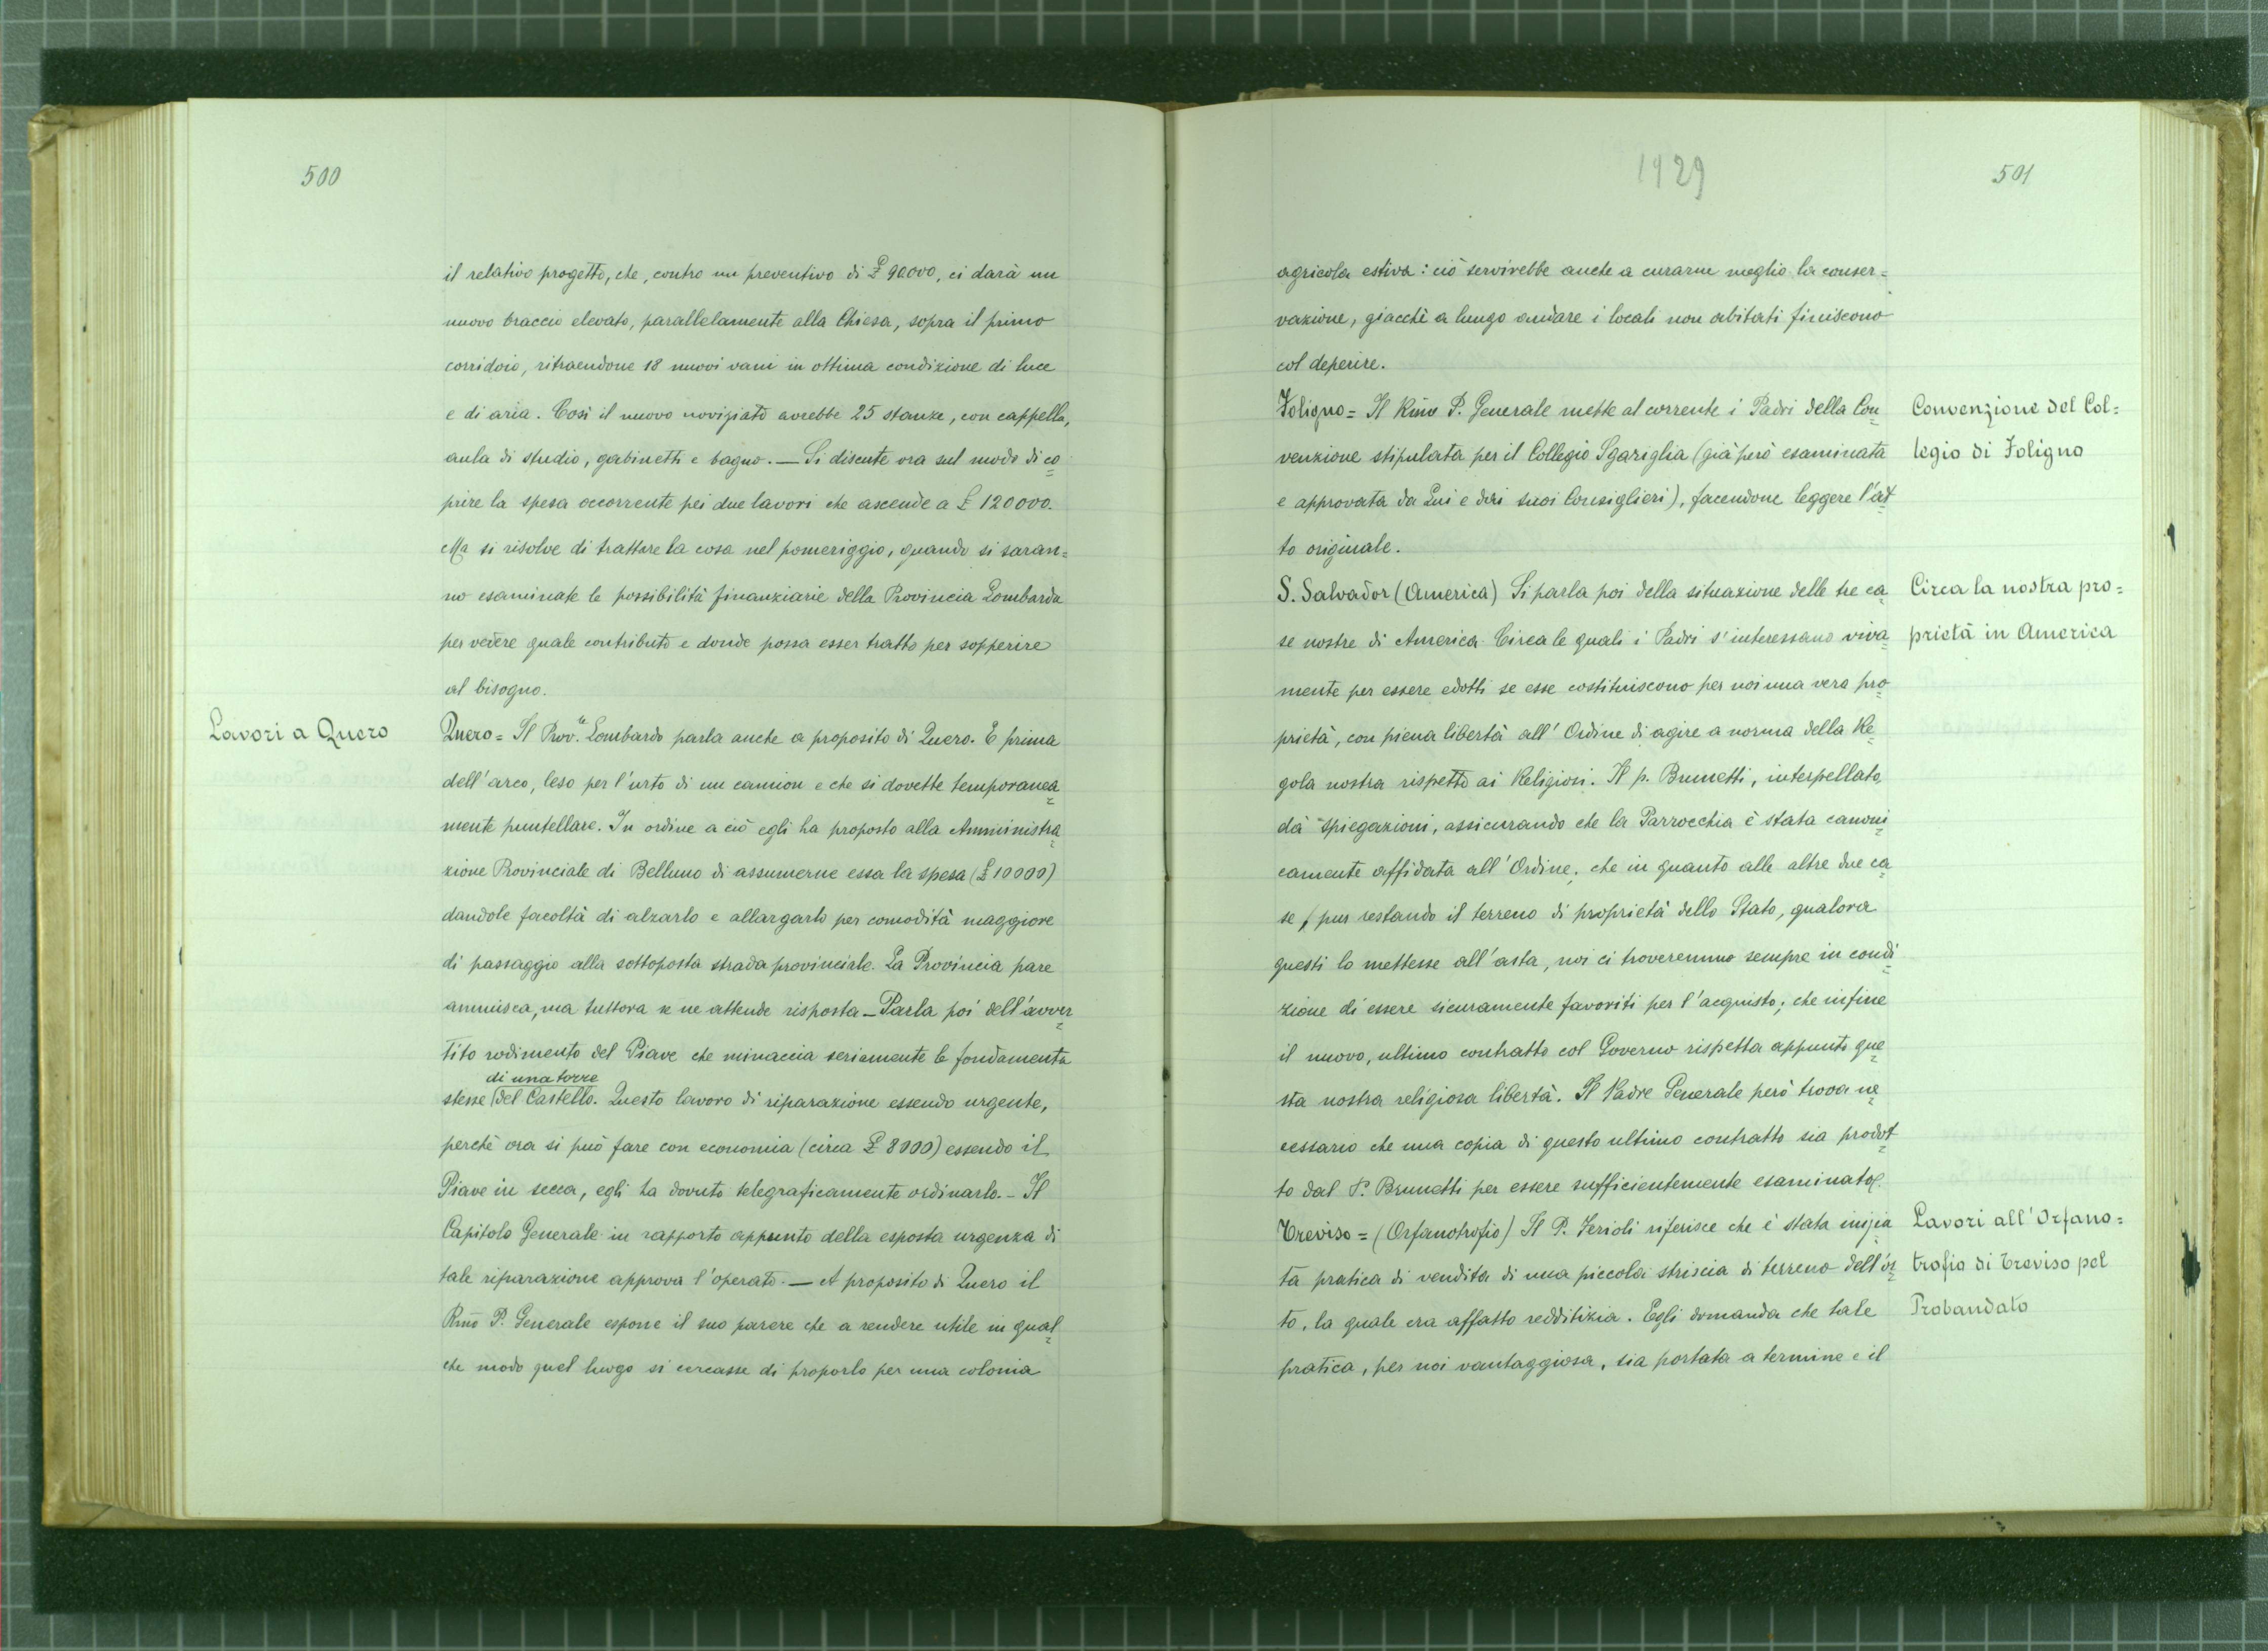 500
il relativo progetto, che, contro un preventivo di £ 90000, ci darà un
nuovo braccio elevato, parallelamente alla Chiesa, sopra il primo
corridoio, ritraendone 18 nuovi vani in ottima condizione di luce
e di aria. Così il nuovo noviziato avrebbe 25 stanze, con cappella,
aula di studio, gabinetti e bagno. — Si discute ora sul modo di co=
prire la spesa occorrente pei due lavori che ascende a £ 120000.
Ma si risolve di trattare la cosa nel pomeriggio, quando si saran=
no esaminate le possibilità finanziarie della Provincia Lombarda
per vedere quale contributo e donde possa esser tratto per sopperire
al bisogno.
Lavori a Quero
Quero = Il Prov.le Lombardo parla anche a proposito di Quero. E prima
dell'arco, leso per l'urto di un camion e che si dovette temporanea=
mente puntellare. In ordine a ciò egli ha proposto alla Amministra=
zione Provinciale di Belluno di assumerne essa la spesa (£ 10000)
dandole facoltà di alzarlo e allargarlo per comodità maggiore
di passaggio alla sottoposta strada provinciale. La Provincia pare
annuisca, ma tuttora se ne attende risposta — Parla poi dell'avver=
tito rodimento del Piave che minaccia seriamente le fondamenta
di una torre
stesse del Castello. Questo lavoro di riparazione essendo urgente,
perchè ora si può fare con economia (circa £ 8000) essendo il
Piave in secca, egli ha dovuto telegraficamente ordinarlo. – Il
Capitolo Generale in rapporto appunto della esposta urgenza di
tale riparazione approva l'operato. — A proposito di Quero il
Rmo P. Generale espone il suo parere che a rendere utile in qual=
che modo quel luogo si cercasse di proporlo per una colonia
1929
501
agricola estiva: ciò servirebbe anche a curarne meglio la conser=
vazione, giacchè a lungo andare i locali non abitati finiscono
col deperire.
Convenzione del Col=
legio di Foligno
Foligno = Il Rmo P. Generale mette al corrente i Padri della Con=
venzione stipulata per il Collegio Sgariglia (già però esaminata
e approvata da Lui e dai suoi Consiglieri), facendone leggere l'at=
to originale.
Circa la nostra pro=
prietà in America
S. Salvador (America) Si parla poi della situazione delle tre ca=
se nostre di America. Circa le quali i Padri s'interessano viva=
mente per essere edotti se esse costituiscono per noi una vera pro=
prietà, con piena libertà all'Ordine di agire a norma della Re=
gola nostra rispetto ai Religiosi. Il p. Brunetti, interpellato,
dà spiegazioni, assicurando che la Parrocchia è stata canoni=
camente affidata all'Ordine; che in quanto alle altre due ca=
se, pur restando il terreno di proprietà dello Stato, qualora
questi lo mettesse all'asta, noi ci troveremmo sempre in condi=
zione di essere sicuramente favoriti per l'acquisto; che infine
il nuovo, ultimo contratto col Governo rispetta appunto que=
sta nostra religiosa libertà. Il Padre Generale però trova ne=
cessario che una copia di questo ultimo contratto sia prodot=
to dal P. Brunetti per essere sufficientemente esaminato.
Lavori all'Orfano=
trofio di Treviso pel
Probandato
Treviso = (Orfanotrofio) Il P. Ferioli riferisce che è stata inizia=
ta pratica di vendita di una piccola striscia di terreno dell'or=
to, la quale era affatto redditizia. Egli domanda che tale
pratica, per noi vantaggiosa, sia portata a termine e il